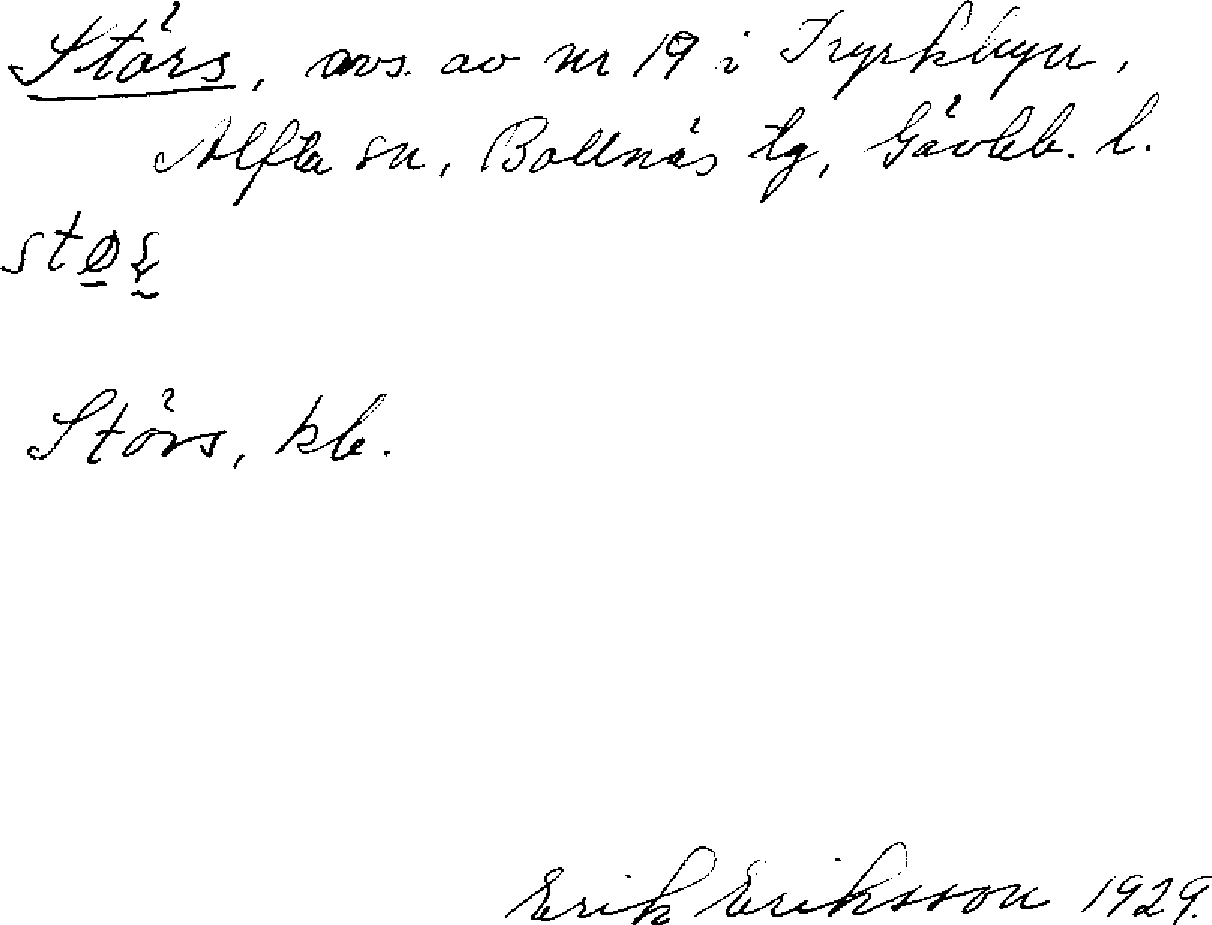 Störs, avs. av nr 19 i Kyrkbyn,
Alfta sn, Bollnäs tg, Gävleb. l.
stø
Störs, kb.
Erik Eriksson 1929.